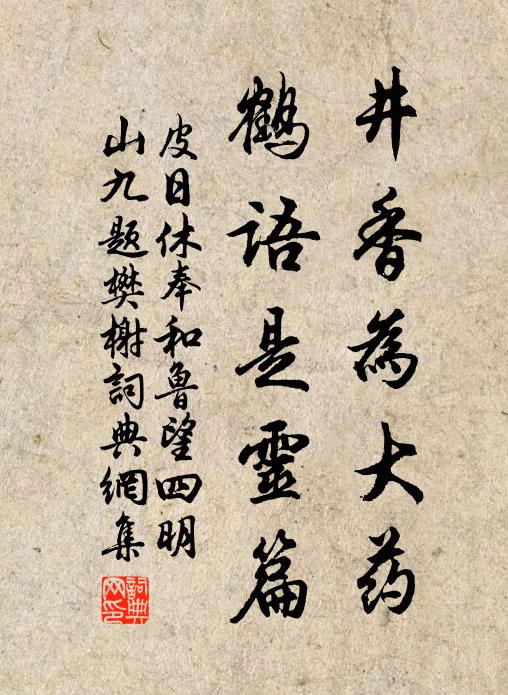 井香為大药
鶴語是靈篇
皮日休奉和魯望四明
山九題樊榭詞典網集
詞典网印